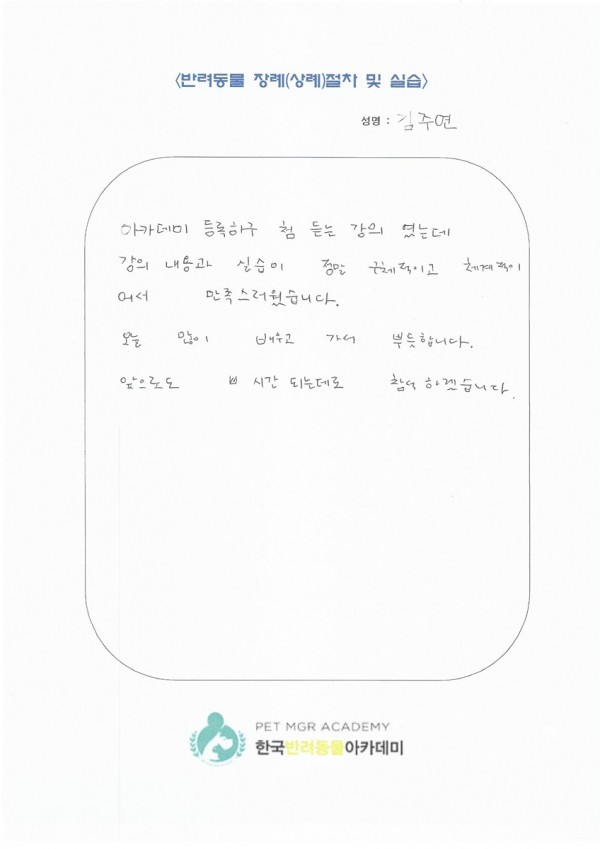 <반려동물 장례(상례)절차 및 실습>
성명 : 김주연
아카데미 등록하구 첨 듣는 강의 였는데
강의 내용과 실습이 정말 구체적이고 체계적이
어서 만족스러웠습니다.
오늘 많이 배우고 가서 뿌듯합니다.
앞으로도 시간 되는데로 참석 하겠습니다.
PET MGR ACADEMY
한국반려동물아카데미